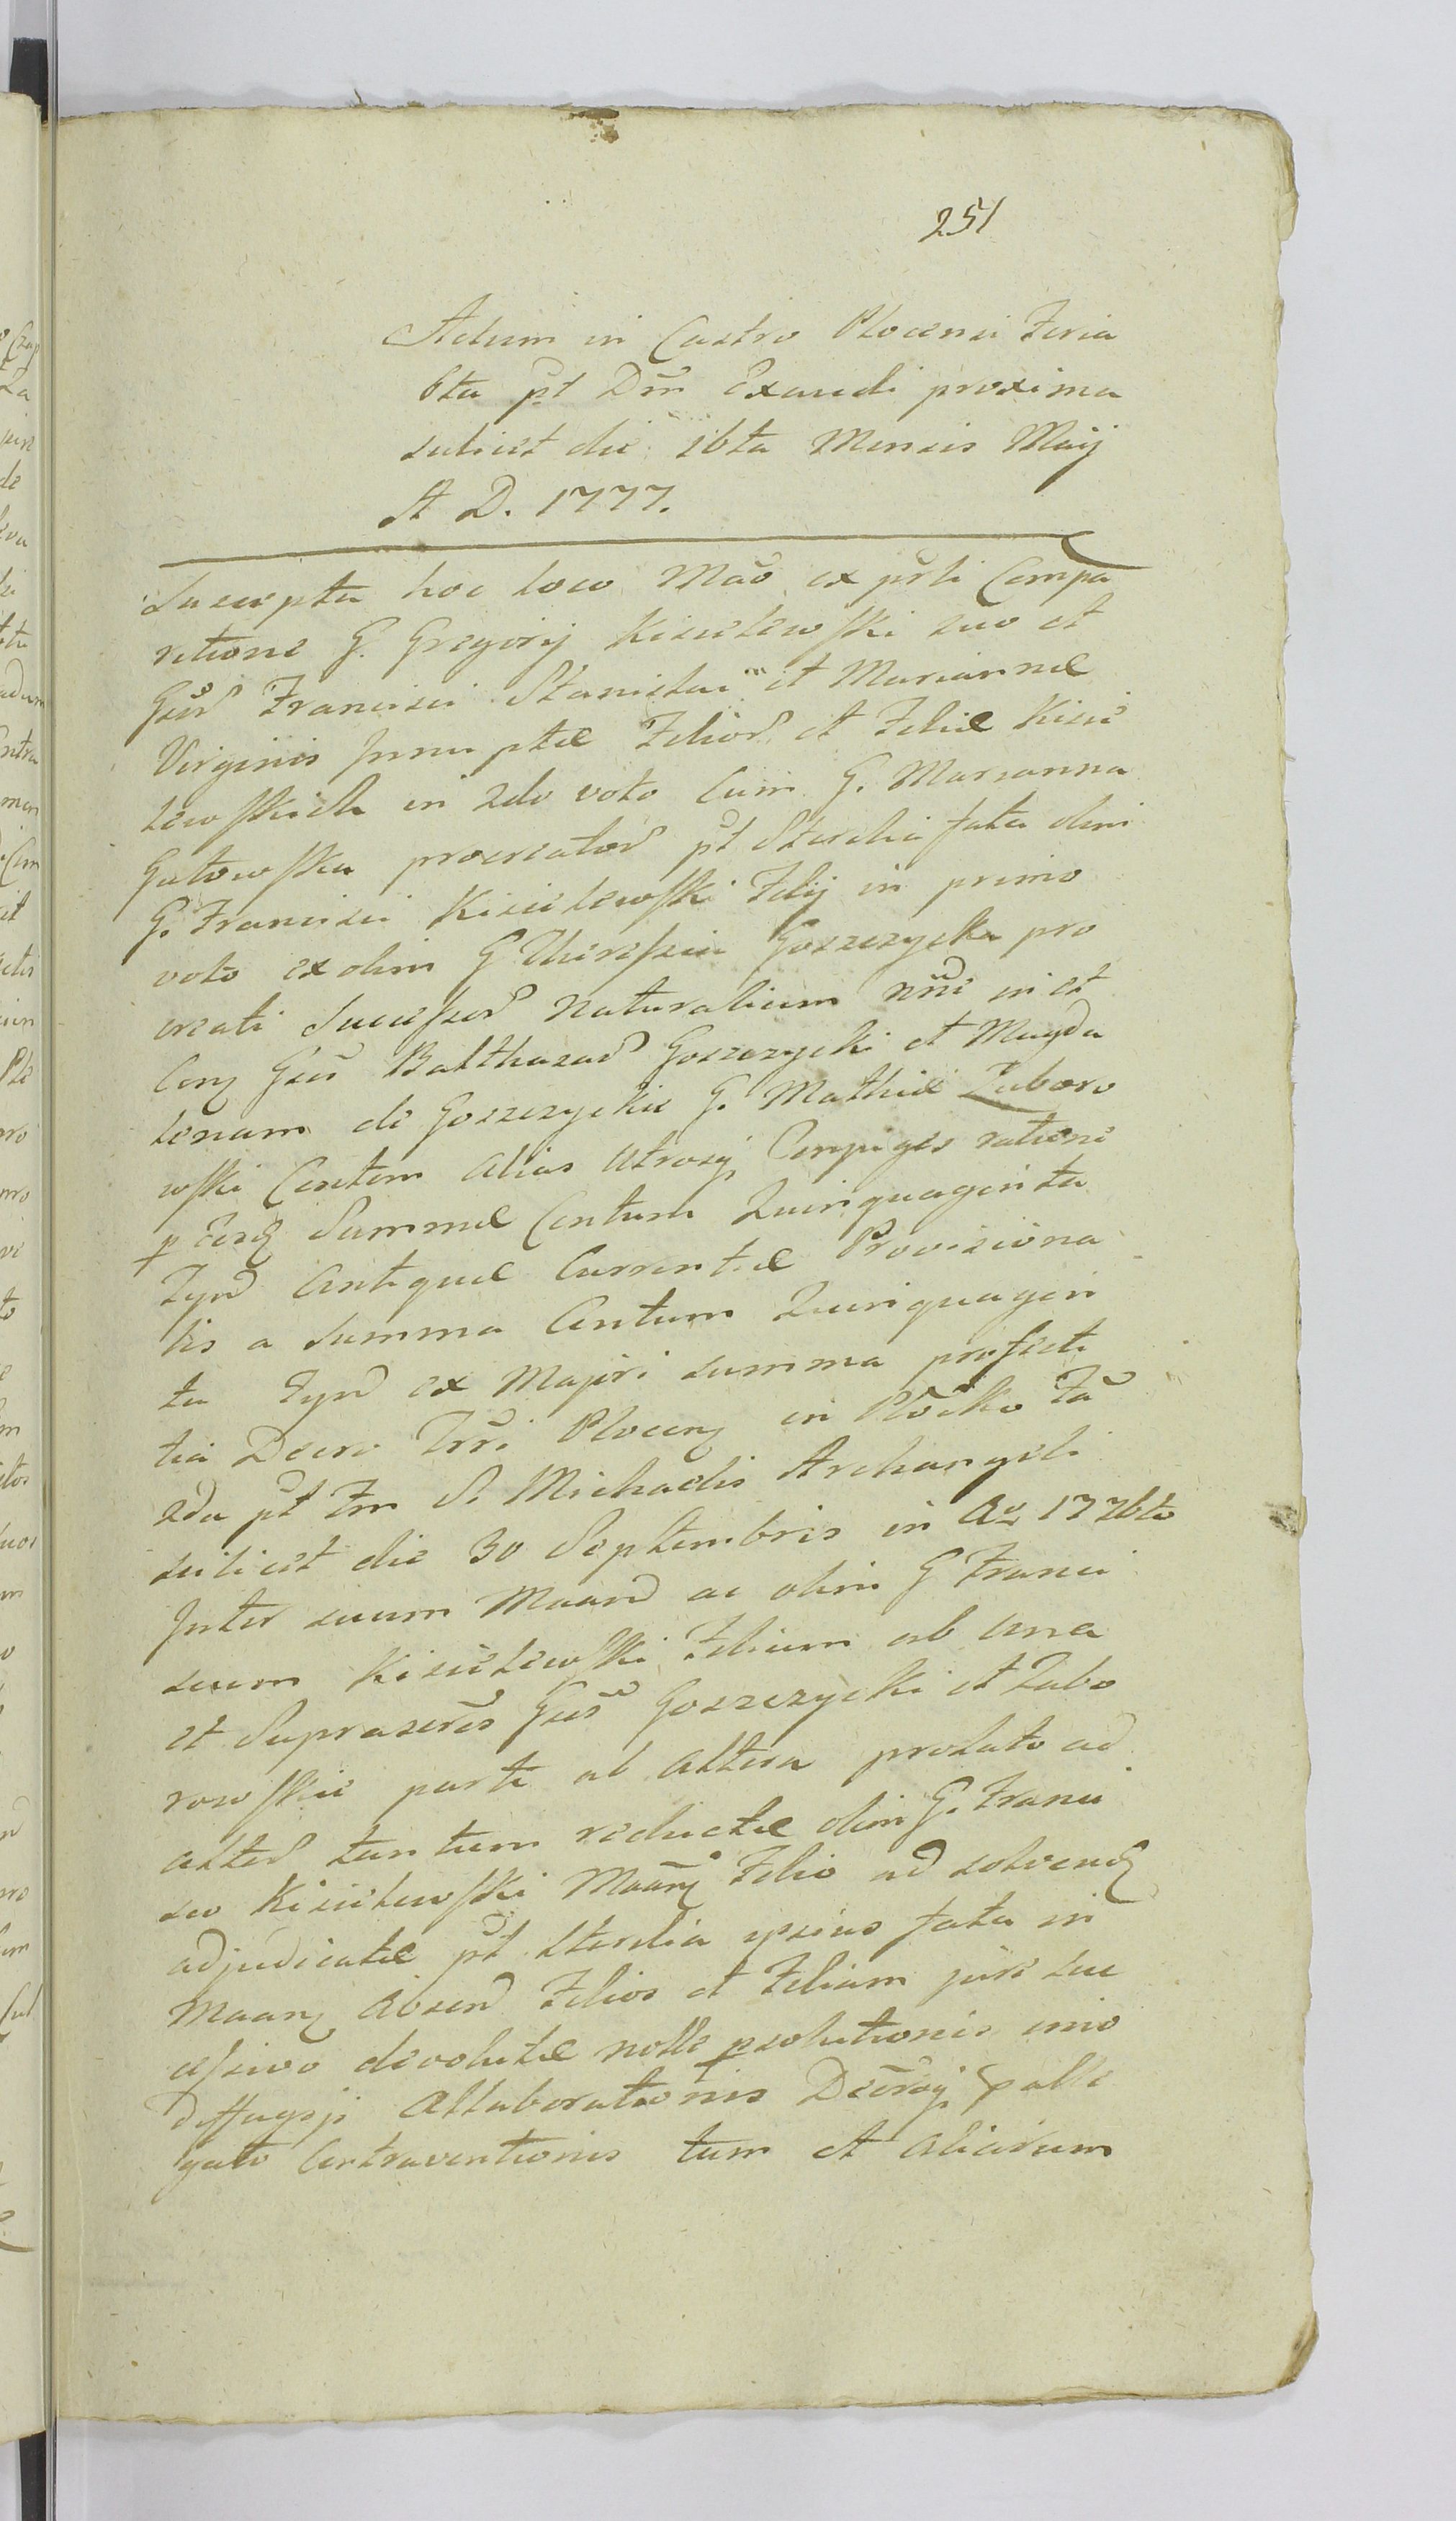 251
Actum in Castro Plocensi Feria
6ta pt Dm Exaudi proxima
scilicet die 16ta Mensis Maij
A D. 1777.
Suscepta hoc loco Mao ex psti Compa
ritione G. Gregorij Kisielewski suo et
Gsor Francisci Stanislai et Mariannæ
Virginis Innuptæ Filior et Filiæ Kisie
lewskich in 2do voto Cum G. Marianna
Gutowska procreator pt Sterilia fata olim
G. Francisci Kisielewski Filij in primo
voto ex olim G Theressia Goszczycka pro
creati Successor naturalium nne in et
Con Gsos Balthasar Goszczycki et Magda
lenam de Goszczyckie G. Mathiæ Zuboro
wski Contem alias utrosq Conjuges ratione
p Summæ Centum Quinquaginta
Tynf Antiquæ Currentiæ Provisiona
lis a Summa Centum Quinquagin
ta Tynf ex Majori summa profecti
tia Decro Trri Plocen in Płocko Fa
2da pt Fm S. Michaelis Archangeli
scilicet die 30 Septembris in Ao 1776to
Inter suum Maand ac olim G Franci
scum Kisielewski Filium ab una
et Suprascros Gsos Goszczycki et Zubo
rowskie parte ab altera prolato ad
alter tantum reductæ olim G. Franci
sco Kisielewski Maan Filio ad solvend
adjudicatæ pt sterilia ipsius fata in
Maan ac Filios et Filiam jure suc
cessivo devolutæ nolle psolutionis imo
diffugij Allaborationis Decroq palle
gato Contraventionis tum et aliarum